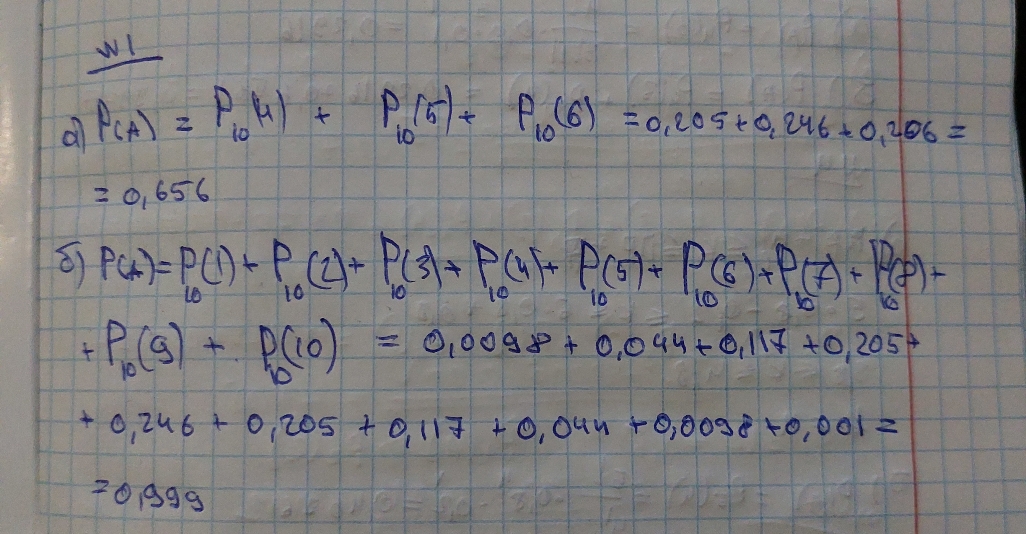 №1
а) P(A) = P₁₀(4) + P₁₀(5) + P₁₀(6) = 0,205 + 0,246 + 0,206 =
= 0,656
б) P(A) = P₁₀(1) + P₁₀(2) + P₁₀(3) + P₁₀(4) + P₁₀(5) + P₁₀(6) + P₁₀(7) + P₁₀(8) +
+ P₁₀(9) + P₁₀(10) = 0,0098 + 0,044 + 0,117 + 0,205 +
+ 0,246 + 0,205 + 0,117 + 0,044 + 0,0098 + 0,001 =
= 0,999